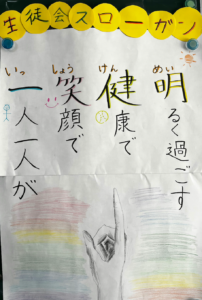 生徒会スローガン
いっ しょう けん めい
一人一人が
笑顔で
健康で
明るく過ごす